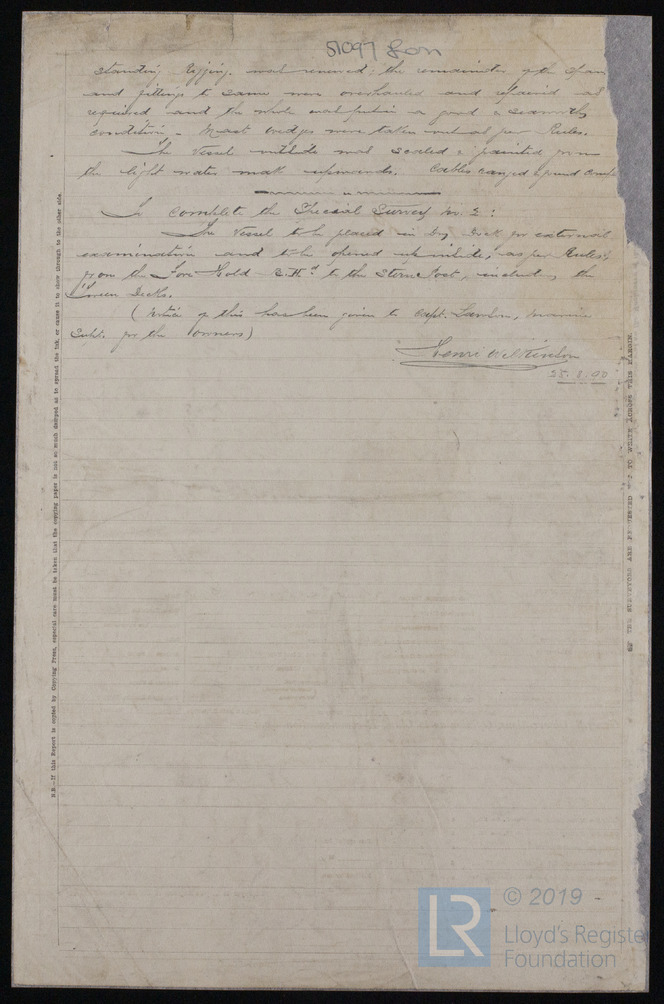 51097 Lon
Standing Rigging was renewed; the remainder of the Spars
and fittings to same were overhauled and repaired as
required and the whole was put in a good & seaworthy
condition - Mast wedges were taken out as per Rules.
The Vessel outside was scaled & painted from
the light water mark upwards. Cables ranged & found
To complete the Special Survey No. 2:
The Vessel to be placed in Dry Dock for external
examination and to be opened up inside, as per Rules,
from the Fore Hold B.Hd to the Stern Post, including the
Decks.
( Notice of this has been given to Capt. Marine
Supt. for the owners)
Henri Wilkinson
25.8.90
N.B.—If this Report is copied by Copying Press, especial care must be taken that the copying paper is not so much damped as to spread the ink, or cause it to show through to the other side.
THE SURVEYORS ARE REQUESTED TO WRITE ACROSS THIS MARGIN.
LR
© 2019
Lloyd's Register
Foundation